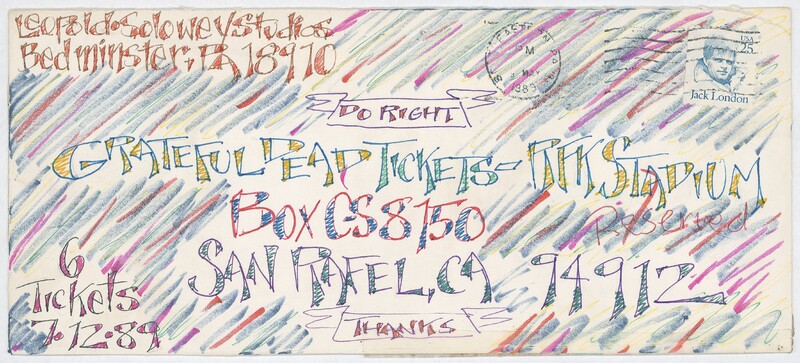 Leopold·Solowey Studios
Bedminster, PA 18910
PM
MAY
1989
USA
25
Jack London
DO RIGHT
GRATEFUL DEAD TICKETS- RFK STADIUM
BOX CS 8150
Reserved
SAN RAFEL, CA 94912
6
Tickets
7·12·89
THANKS